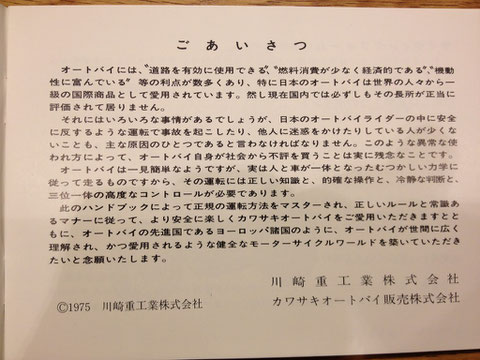 ごあいさつ
オートバイには、〝道路を有効に使用できる〟、〝燃料消費が少なく経済的である〟、〝機動
性に富んでいる〟等の利点が数多くあり、特に日本のオートバイは世界の人々から一
級の国際商品として愛用されています。然し現在国内では必ずしもその長所が正当に
評価されて居りません。
それにはいろいろな事情があるでしょうが、日本のオートバイライダーの中に安全
に反するような運転で事故を起こしたり、他人に迷惑をかけたりしている人が少くな
いことも、主な原因のひとつであると言わなければなりません。このような異常な使
われ方によって、オートバイ自身が社会から不評を買うことは実に残念なことです。
オートバイは一見簡単なようですが、実は人と車が一体となったむつかしい力学に
従って走るものですから、その運転には正しい知識と、的確な操作と、冷静な判断と、
三位一体の高度なコントロールが必要であります。
此のハンドブックによって正規の運転方法をマスターされ、正しいルールと常識あ
るマナーに従って、より安全に楽しくカワサキオートバイをご愛用いただきますとと
もに、オートバイの先進国であるヨーロッパ諸国のように、オートバイが世間に広く
理解され、かつ愛用されるような健全なモーターサイクルワールドを築いていただき
たいと念願いたします。
川崎重工業株式会社
©1975 川崎重工業株式会社
カワサキオートバイ販売株式会社